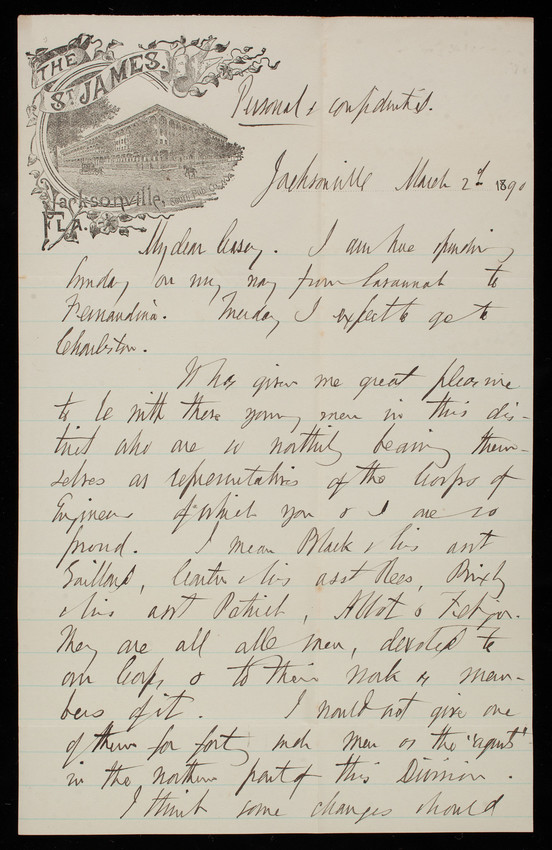 THE
ST. JAMES.
Jacksonville,
FLA.
Personal & confidential.
Jacksonville March 2d 1890
My dear Casey. I am here spending
Sunday on my way from Savannah to
Fernandina. Tuesday I expect to go to
Charleston.
It has given me great pleasure
to be with these young men in this dis-
trict who are so worthily bearing them-
selves as representatives of the Corps of
Engineers of which you & I are so
proud. I mean Black & his asst
Gaillard, Carter & his asst Rees, Bixby
& his asst Patrick, Abbot &
They are all able men, devoted to
our Corps & to their work as mem-
bers of it. I would not give one
of them for forty such men as the "agents"
in the northern part of this Division.
I think some changes should